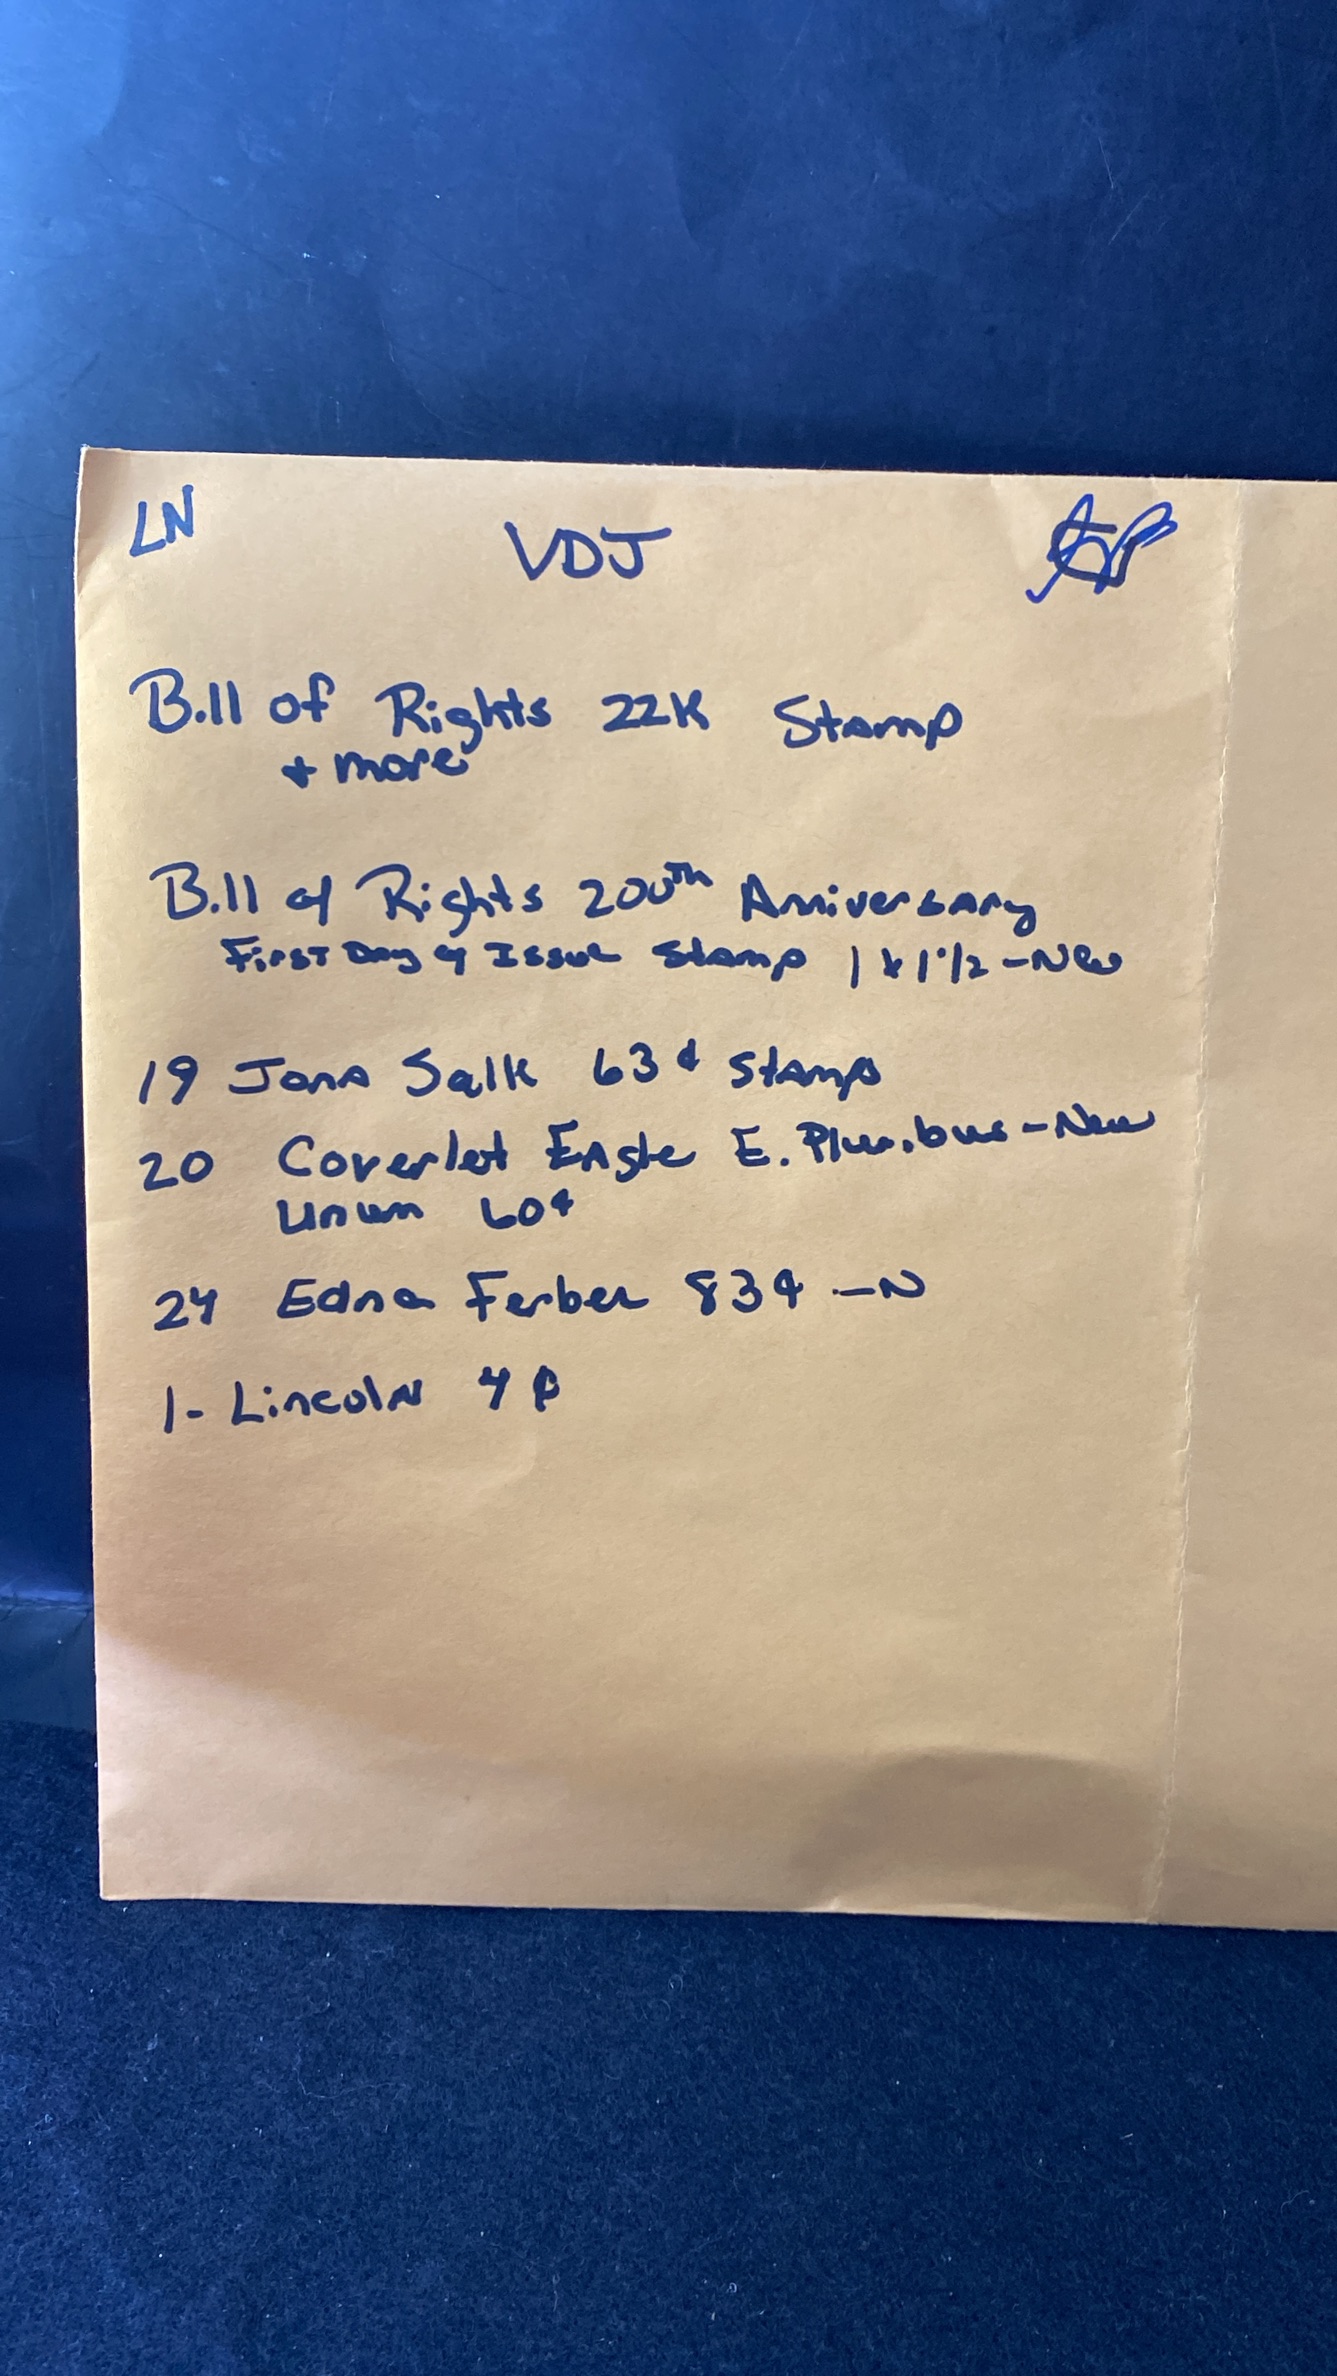 LN VDJ
Bill of Rights 22K Stamp
+ more
Bill of Rights 200th Anniversary
First Day of Issue Stamp 1 x 1 1/2 - New
19 Jona Salk 63¢ Stamp
20 Coverlet Eagle E. Pluribus - New
Unum 60¢
24 Edna Ferber 83¢ - N
1 - Lincoln 4¢